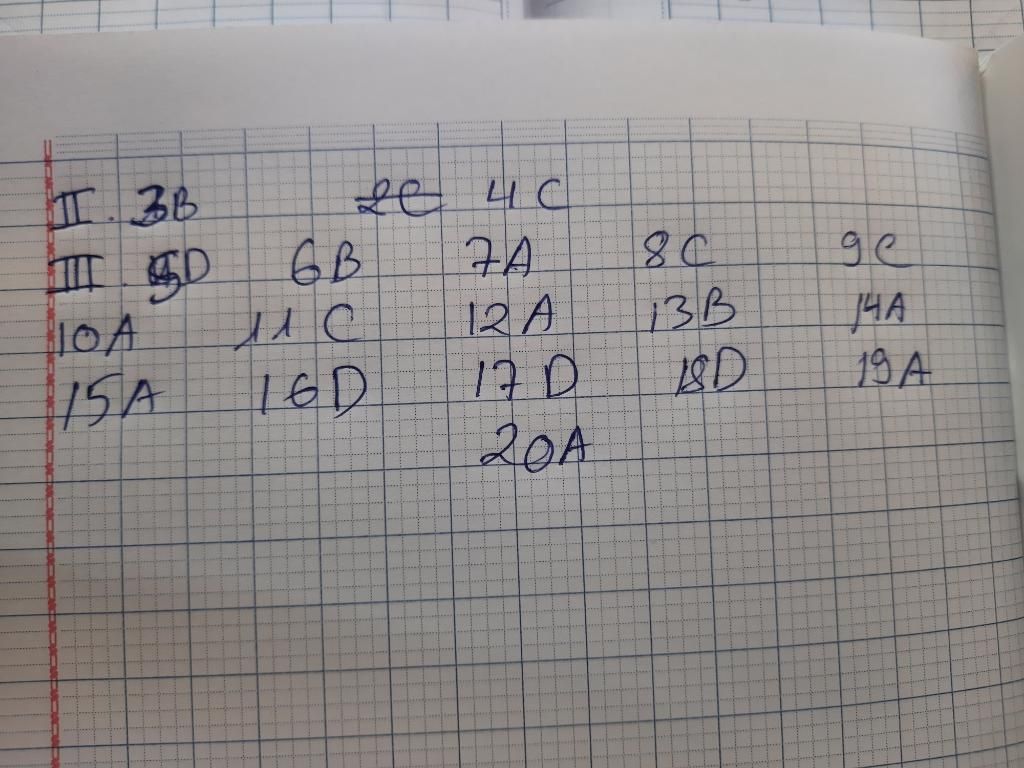 II. 3B 2C 4C
III. 5D 6B 7A 8C 9C
10A 11C 12A 13B 14A
15A 16D 17D 18D 19A
20A